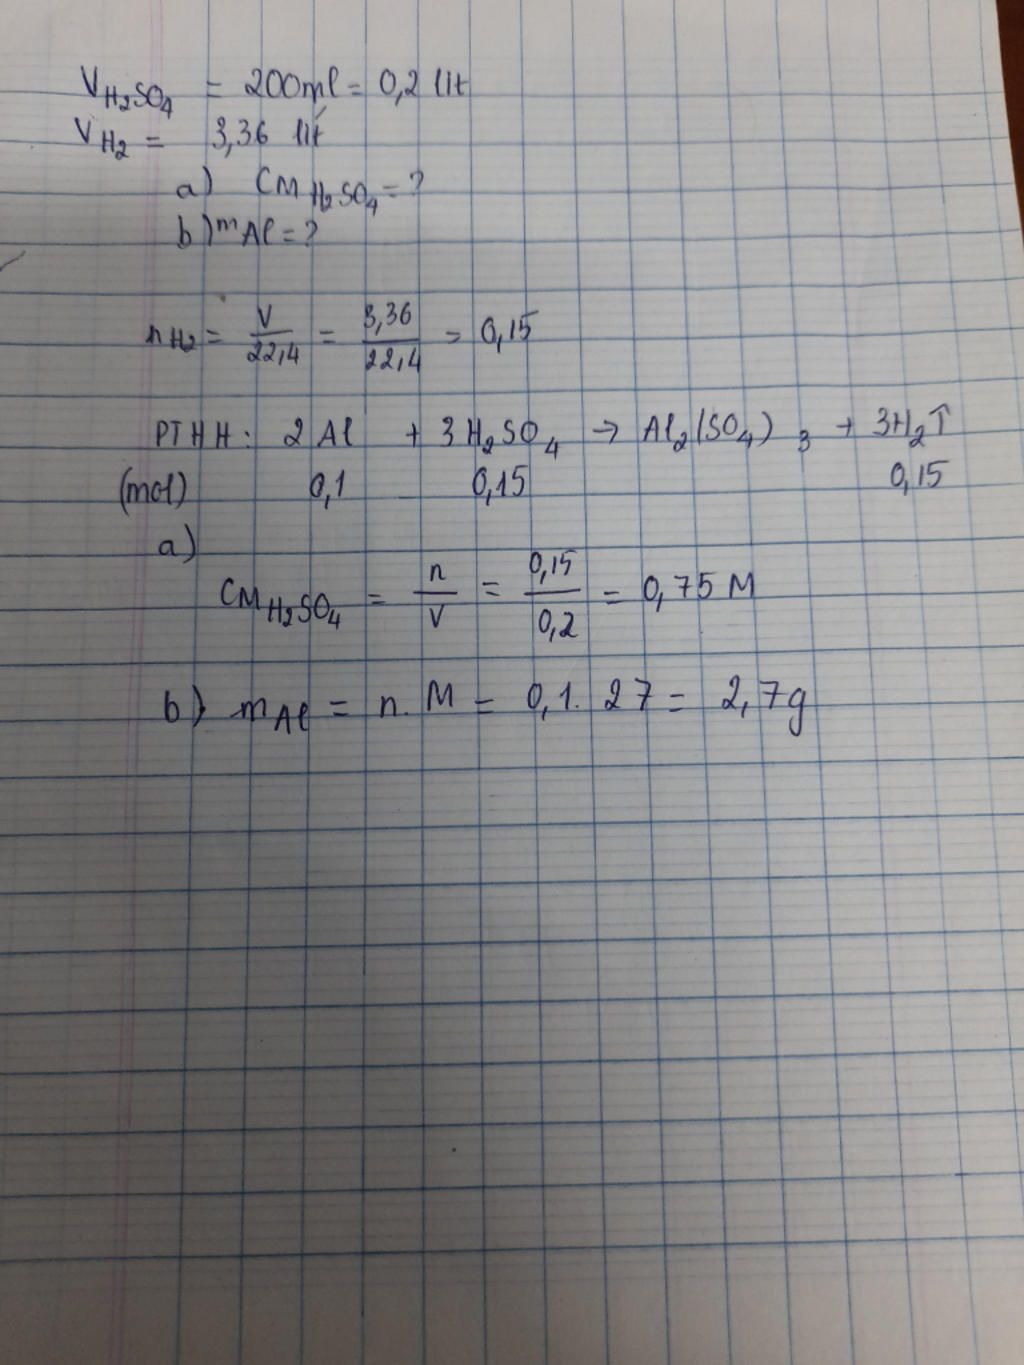 V H₂SO₄ = 200ml = 0,2 lít
V H₂ = 3,36 lít
a) CM H₂SO₄ = ?
b) mAl = ?
nH₂ = V/22,4 = 3,36/22,4 = 0,15
PTHH: 2Al + 3H₂SO₄ → Al₂(SO₄)₃ + 3H₂↑
(mol) 0,1 0,15 0,15
a)
CM H₂SO₄ = n/V = 0,15/0,2 = 0,75 M
b) mAl = n.M = 0,1. 27 = 2,7g